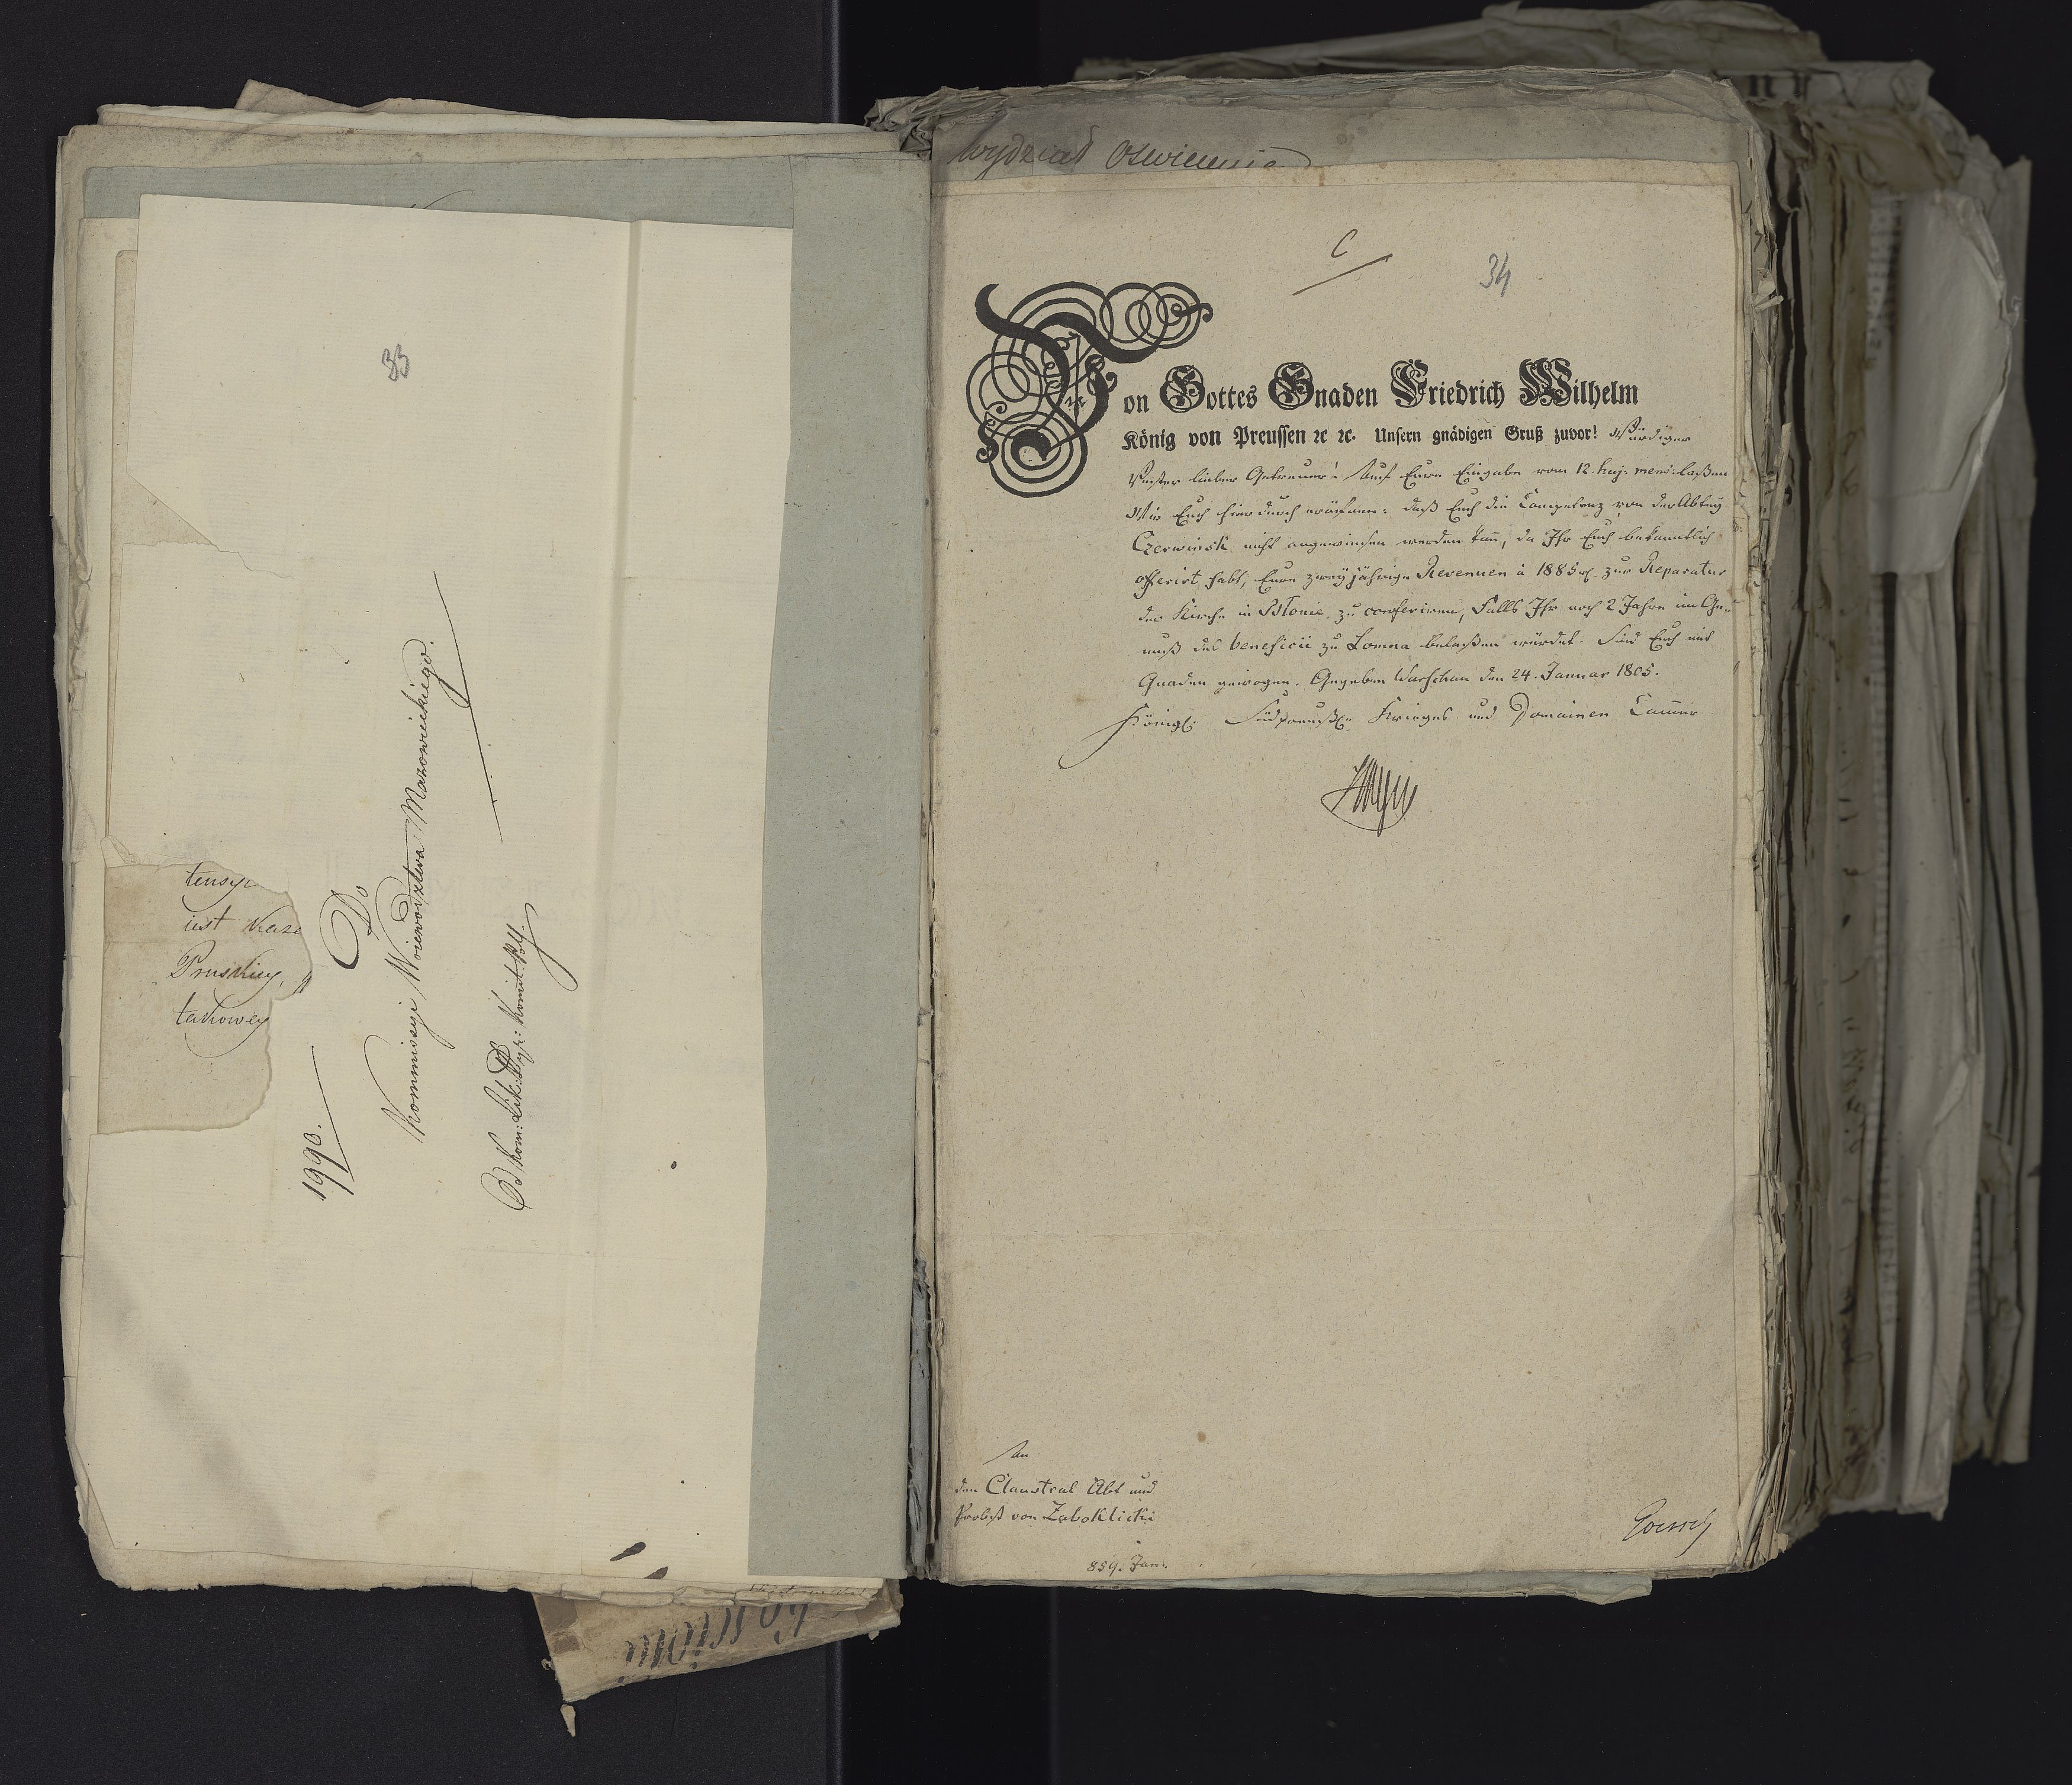 33
tensyi
iest Kaze
Pruskiey,
takowey
1990.
Do
Kommissyi Woiewodztwa Mazowieckiego.
Od Kom: Lik:
Wydział Oswiecenia
C
34
Von Gottes Gnaden Friedrich Wilhelm
König von Preussen ꝛc ꝛc. Unsern gnädigen Gruß zuvor! Würdiger
Vester lieber Getreuer! Auf Eure Eingabe vom 12. huj: mens: laßen
Wir Euch hierdurch eröfnen: daß Euch die Competenz von der Abtey
Czerwinsk nicht angewiesen werden kann, da Ihr Euch bekanntlich
offerirt habt, Eure zweyjährige Revenuen à 1885 rℓ. zur Reparatur
der Kirche in Blonie zu conferiren, Falls Ihr noch 2 Jahre im Ge-
nuß des beneficii zu Lomna belaßen würdet. Sind Euch mit
Gnaden gewogen. Gegeben Warschau den 24. Januar 1805.
Königl: Südpreuß: Krieges und Domainen Cammer
An
den Claustral Abt und
Probst von Zaboklicki
859. Jan: